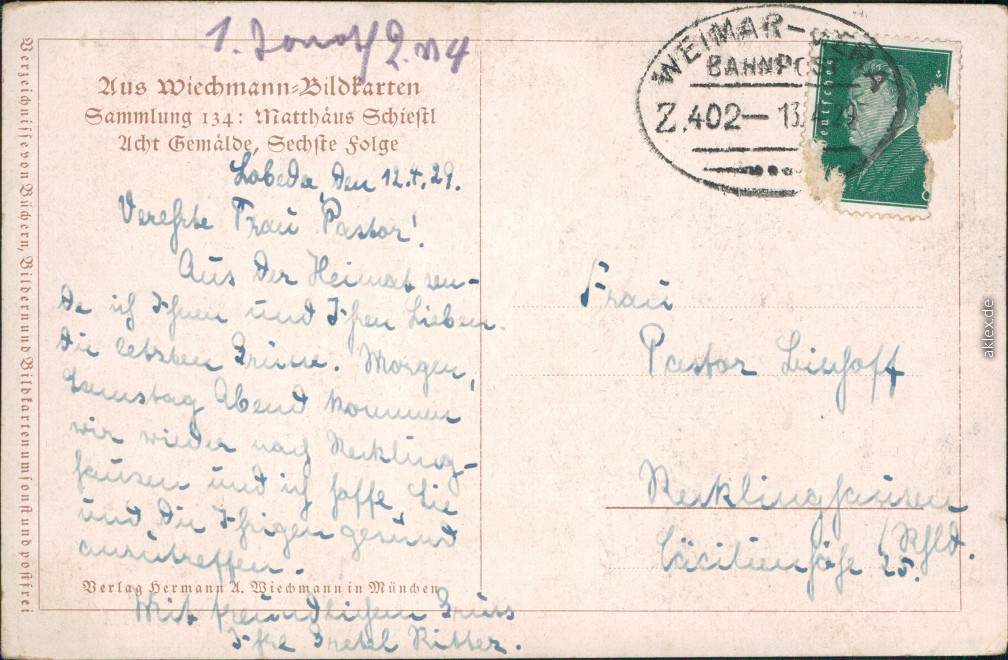 WEIMAR–GERA
BAHNPOST
Z.402— 13.4.29
Aus Wiechmann-Bildkarten
Sammlung 134: Matthäus Schiestl
Acht Gemälde, Sechste Folge
Lobeda, den 12.4.29.
Verehrte Frau Pastor!
Aus der Heimat sen-
de ich Ihnen und Ihren Lieben
die letzten Grüsse. Morgen,
Samstag Abend kommen
wir wieder nach Reckling-
hausen und ich hoffe, Sie
und die Ihrigen gesund
anzutreffen.
Verlag Hermann A. Wiechmann in München
Mit freundlichem Gruss
Ihre Gretel Ritter.
Verzeichnisse von Büchern, Bildern und Bildkarten umsonst und postfrei
Frau
Pastor Bischoff
Recklinghausen
Cäcilienhöhe 25.
aklex.de